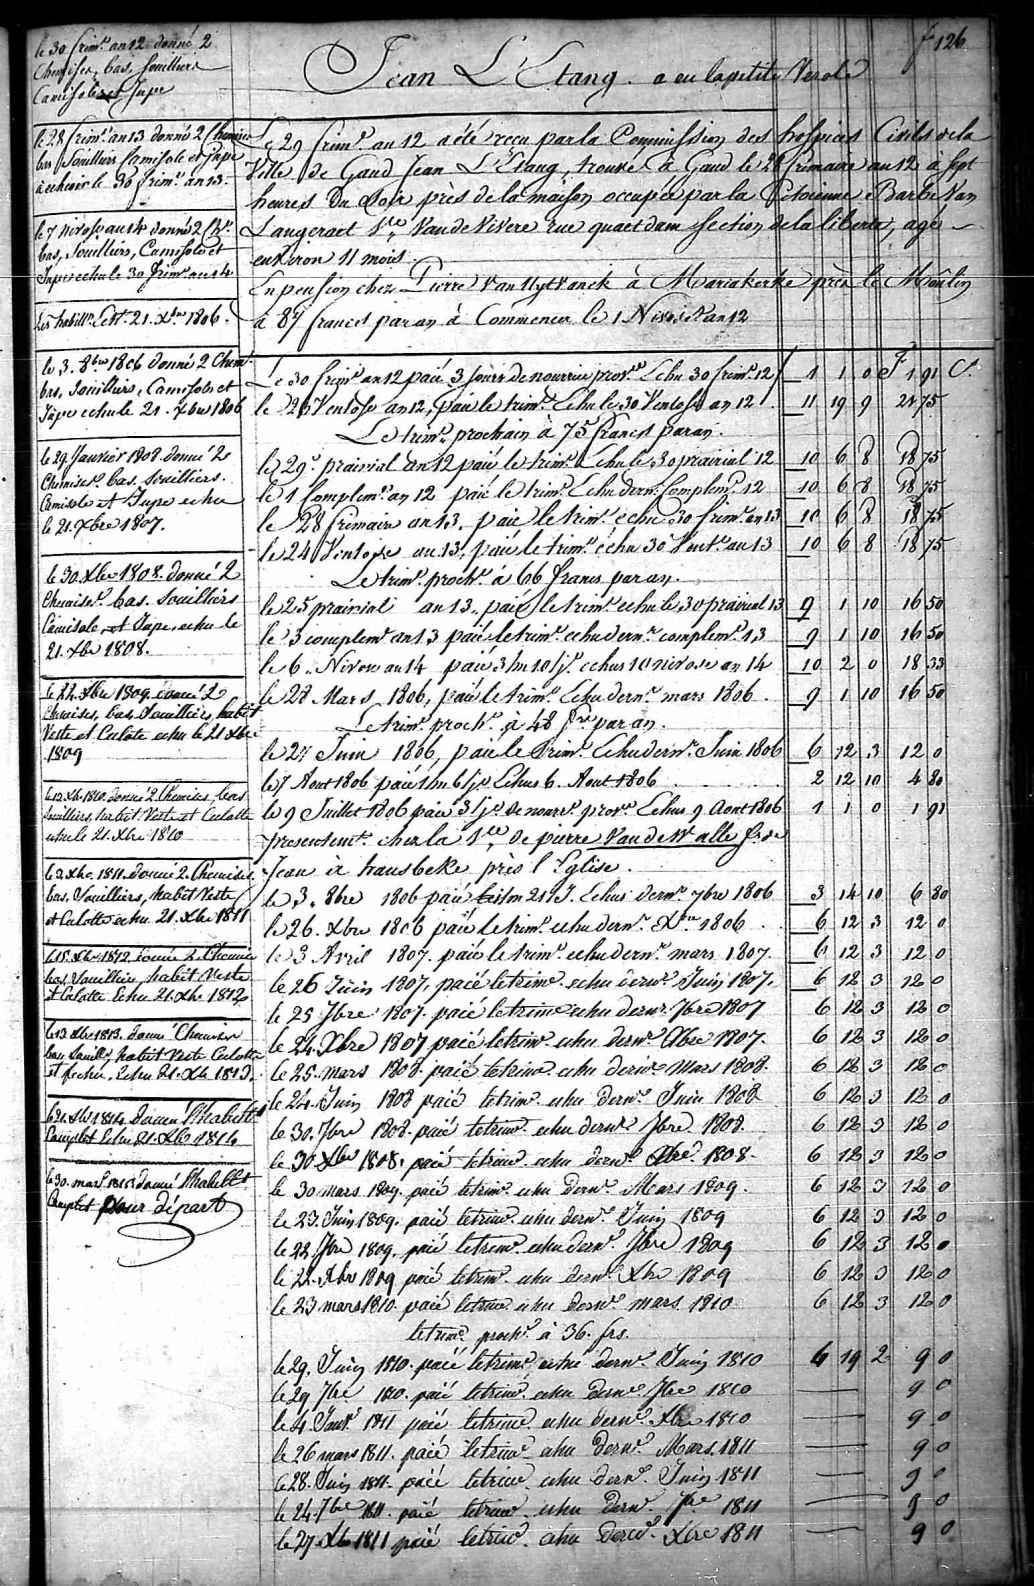 fo 126
Jean L'Etang. a eu la petite Verole
le 30 frimre an 12 donné 2
Chemises, bas, souilliers
Camisole et Jupe
le 28 frimre an 13 donné 2 Chemises
bas Souilliers Camisole et Jupe
echus le 30 frimre an 13.
le 7 nivose an 14 donné 2
bas, Souilliers, Camisole et
Jupe echu le 30 frimre an 14
21. Xbre 1806.
le 3. 8bre 1806 donné 2 Chem.
bas, Souilliers, Camisole et
Jupe echu le 21. 7bre 1806
le 29 Janvier 1808 donné 2
Chemises. bas. Souilliers.
Camisole et Jupe echu
le 21. Xbre 1807.
le 30. Xbre 1808. donné 2
Chemises. bas. Souilliers
Camisole, et Jupe, echu le
21. Xbre 1808.
le 22. Xbre 1809. donné 2
Chemises, bas, Souilliers, habit
Veste et Culote echu le 21 Xbre
1809
le 12. Xbre 1810. donné 2 Chemises, bas
Souilliers, habit Veste et Culotte
echu le 21. Xbre 1810
Xbre 1811. donné 2. Chemises
bas, Souilliers, habit Veste
et Culotte echu 21. Xbre 1811
le 15. Xbre 1812 donné 2. Chemises
bas, Souilliers, habit Veste
et Culotte Echu 21. Xbre 1812
le 13 Xbre 1813. donné Chemises
bas, Souilly, habit Veste Culotte
et fichu, Echu 21. Xbre 1813.
le 21. Xbre 1814 donné l'habillt
Complet Echu 21. Xbre 1814
le 30. mars donné l'habillt
Complet pour départ
Le 29 frimre an 12 a été reçu par la Commission des hospices Civils de la
Ville de Gand Jean L'Etang, trouvé à Gand le 28 frimaire an 12 à sept
heures du Soir près de la maison occupée par la Citoienne Barbe Van
Langeraet Vve Van de Vivere rue quaetdam section de la liberté, agé
environ 11 mois.
En pension chez Pierre Van Uytvanck à Mariakerke près le Moulin
à 87 francs par an à Commencer le 1 Nivose an 12
F. Cs.
Le 30 frimre an 12 paié 3 jours de nourrice provre Echu 30 frimre 12 1 1 0 1 91
le 26 Ventose an 12, paié le trimre Echu le 30 Ventose an 12 11 19 9 21 75
Le trimre prochain à 75 francs par an.
le 29 prairial an 12 paié le trimre Echu le 30 prairial 12 10 6 8 18 75
le 1 Complemre an 12 paié le trimre Echu dernr Complemre 12 10 6 8 18 75
le 28 frimaire an 13, paié le trimre echu 30 frimre an 13 10 6 8 18 75
le 24 Ventose an 13, paié le trimre échu 30 Ventre an 13 10 6 8 18 75
Le trimre prochn à 66 francs par an.
le 25 prairial an 13, paié le trimre echu le 30 prairial 13 9 1 10 16 50
le 3 complemre an 13 paié le trimre echu dernr complemre 13 9 1 10 16 50
le 6. Nivose an 14 paié 3 m 10 jrs echus 10 nivose an 14 10 2 0 18 33
le 28 Mars 1806, paié le trimre Echu dernr mars 1806 9 1 10 16 50
Le trimre prochn à 48 frs par an.
le 27 Juin 1806, paié le Trimre Echu dernr Juin 1806 6 12 3 12 0
le 7 Aout 1806 paié 1 m 6 jrs Echus 6. Aout 1806 2 12 10 4 80
le 9 Juillet 1806 paié 3 jrs de nourre provre Echus 9 Aout 1806 1 1 0 1 91
presentemt chez la Vve de pierre Van de Walle fs de
Jean à hansbeke près l'Eglise.
le 3. 8bre 1806 paié 1 m 21 J. Echus dernr 7bre 1806 3 14 10 6 80
le 26. Xbre 1806 paié le trimre echu dernr Xbre 1806 6 12 3 12 0
le 3 Avril 1807. paié le trimre echu dernr mars 1807. 6 12 3 12 0
le 26 Juin 1807, paié le trimre echu dernr Juin 1807. 6 12 3 12 0
le 25 7bre 1807. paié le trimre echu dernr 7bre 1807 6 12 3 12 0
le 24. Xbre 1807 paié le trimre echu dernr Xbre 1807. 6 12 3 12 0
le 25. mars 1808. paié le trimre echu dernr Mars 1808. 6 12 3 12 0
le 24. Juin 1808 paié le trimre echu dernr Juin 1808 6 12 3 12 0
le 30. 7bre 1808. paié le trimre echu dernr 7bre 1808. 6 12 3 12 0
le 30 Xbre 1808. paié le trimre echu dernr Xbre 1808. 6 12 3 12 0
le 30 mars 1809. paié le trimre echu dernr Mars 1809. 6 12 3 12 0
le 23. Juin 1809. paié le trimre echu dernr Juin 1809 6 12 3 12 0
le 22 7bre 1809. paié le trimre echu dernr 7bre 1809 6 12 3 12 0
le 22. Xbre 1809 paié le trimre echu dernr Xbre 1809 6 12 3 12 0
le 23 mars 1810. paié le trimre echu dernr mars 1810 6 12 3 12 0
le trimre prochn à 36. frs.
le 29. Juin 1810. paié le trimre echu dernr Juin 1810 4 19 2 9 0
le 29 7bre 1810. paié le trimre echu dernr 7bre 1810 9 0
le 4. Janvr 1811 paié le trimre echu dernr Xbre 1810 9 0
le 26 mars 1811. paié le trimre echu dernr Mars 1811 9 0
le 28. Juin 1811. paié le trimre echu dernr Juin 1811 9 0
le 24. 7bre 1811. paié le trimre echu dernr 7bre 1811 9 0
le 27 Xbre 1811 paié le trimre echu dernr Xbre 1811 9 0